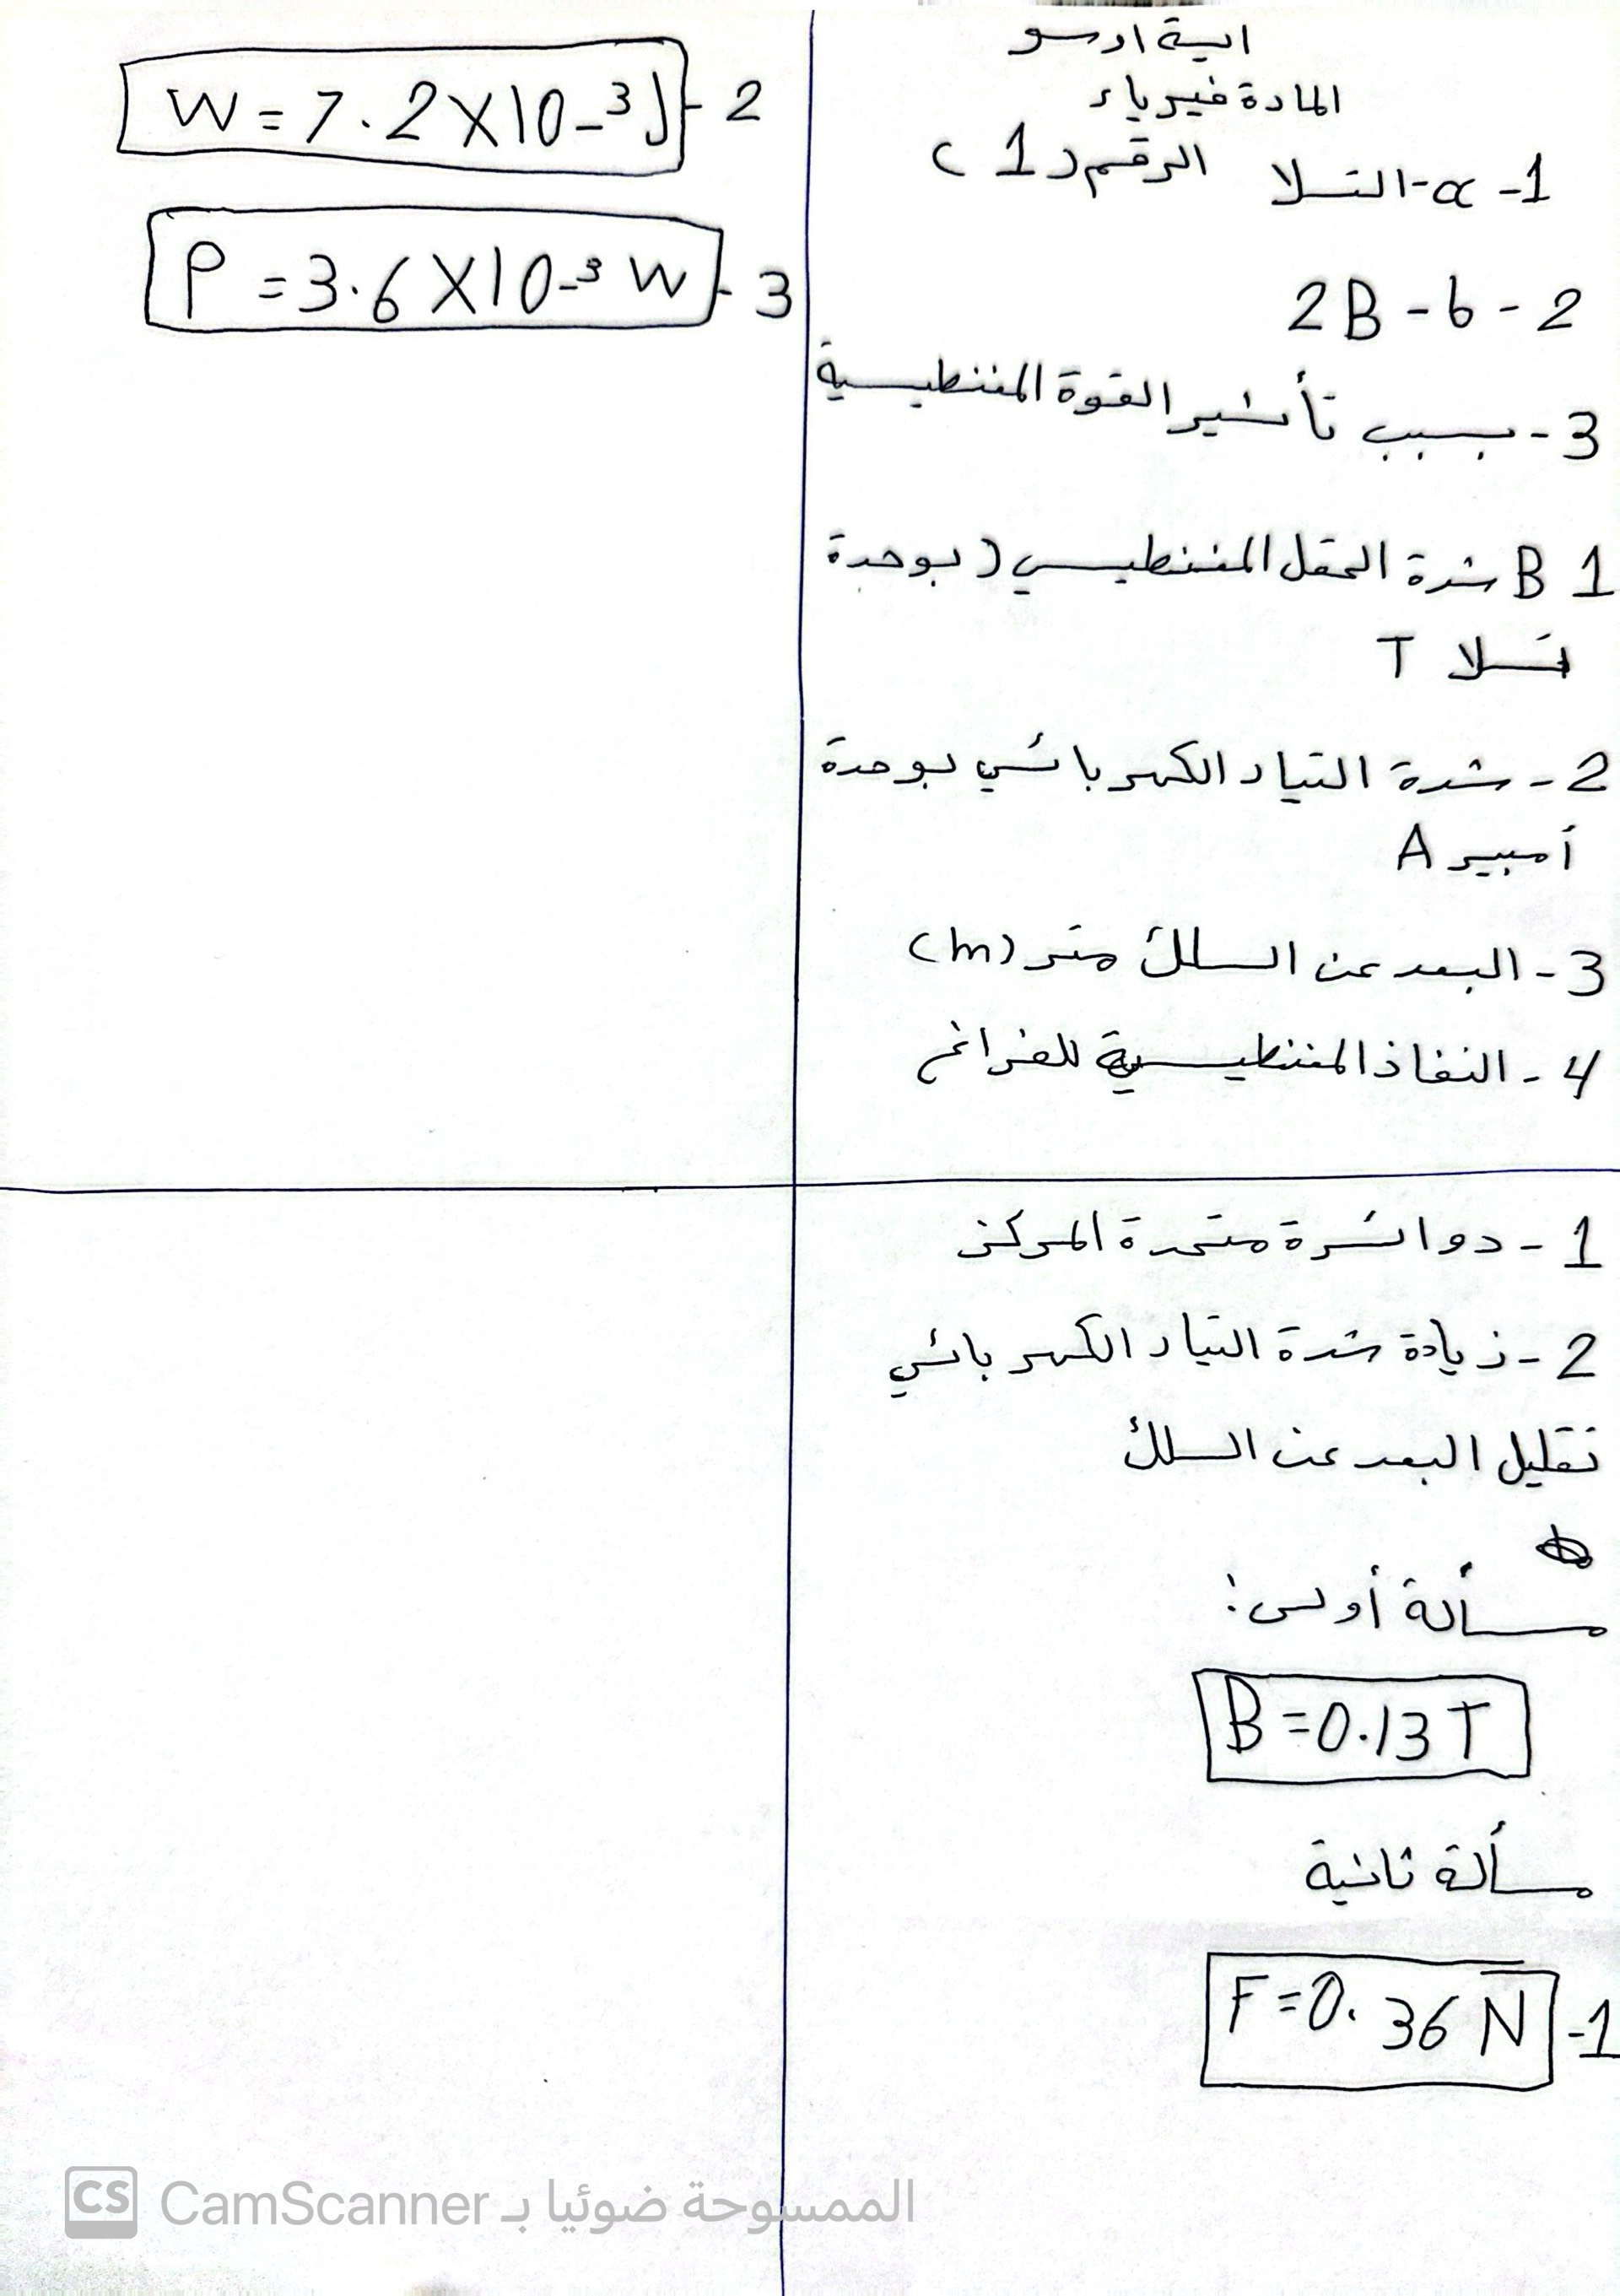 اية اوسو
المادة فيزياء
الرقم (1)
1- a- التسلا
2 - b - 2B
3- بسبب تأثير القوة المغنطيسية
1 B شدة الحقل المغنطيسي (بوحدة
تسلا T
2- شدة التيار الكهربائي بوحدة
أمبير A
3- البعد عن السلك متر (m)
4- النفاذ المغنطيسية للفراغ
1- دوائرة متحدة المركز
2- زيادة شدة التيار الكهربائي
تقليل البعد عن السلك
مسألة أولى:
B = 0.13 T
مسألة ثانية
1- F = 0.36 N
2- W = 7.2 X 10-3 J
3- P = 3.6 X 10-3 W
CS CamScanner الممسوحة ضوئيا بـ